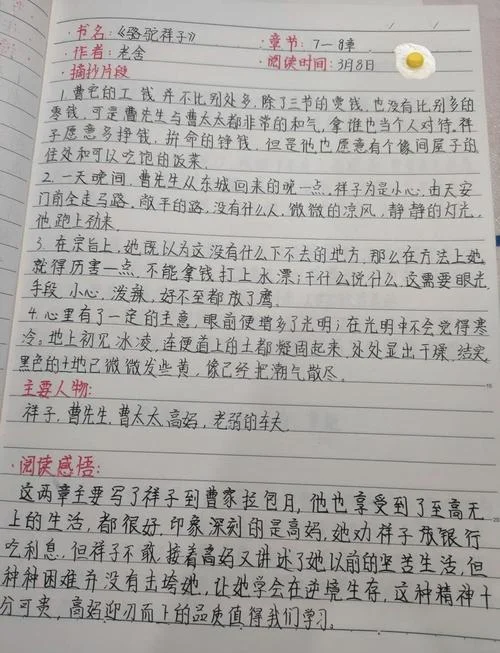 ·书名:《骆驼祥子》 ·章节:7-8章
·作者:老舍 ·阅读时间:3月8日
·摘抄片段
1.曹宅的工钱并不比别处多,除了三节的赏钱,也没有比别多的
零钱,可是曹先生与曹太太都非常的和气,拿谁也当个人对待.祥
子愿意多挣钱,拚命的挣钱,但是他也愿意有个像间屋子的
住处和可以吃饱的饭菜.
2.一天晚间,曹先生从东城回来的晚一点.祥子为是小心,由天安
门前全走马路.敞平的路,没有什么人,微微的凉风,静静的灯光,
他跑上劲来.
3.在宗旨上,她既以为这没有什么下不去的地方,那么在方法上她
就得厉害一点,不能拿钱打上水漂;干什么说什么.这需要眼光,
手段,小心,泼辣,好不至都放了鹰.
4.心里有了一定的主意,眼前便增多了光明;在光明中不会觉得寒
冷.地上初见冰凌,连便道上的土都凝固起来,处处显出干燥,结实,
黑色的土地已微微发些黄,像已经把潮气散尽.
主要人物:
祥子,曹先生,曹太太,高妈,老弱的车夫.
·阅读感悟:
这两章主要写了祥子到曹家拉包月,他也享受到了至高无
上的生活,都很好.印象深刻的是高妈,她劝祥子放银行
吃利息,但祥子不敢,接着高妈又讲述了她以前的坚苦生活,但
种种困难并没有击垮她,让她学会在逆境生存,这种精神十
分可贵,高妈迎刃而上的品质值得我们学习.